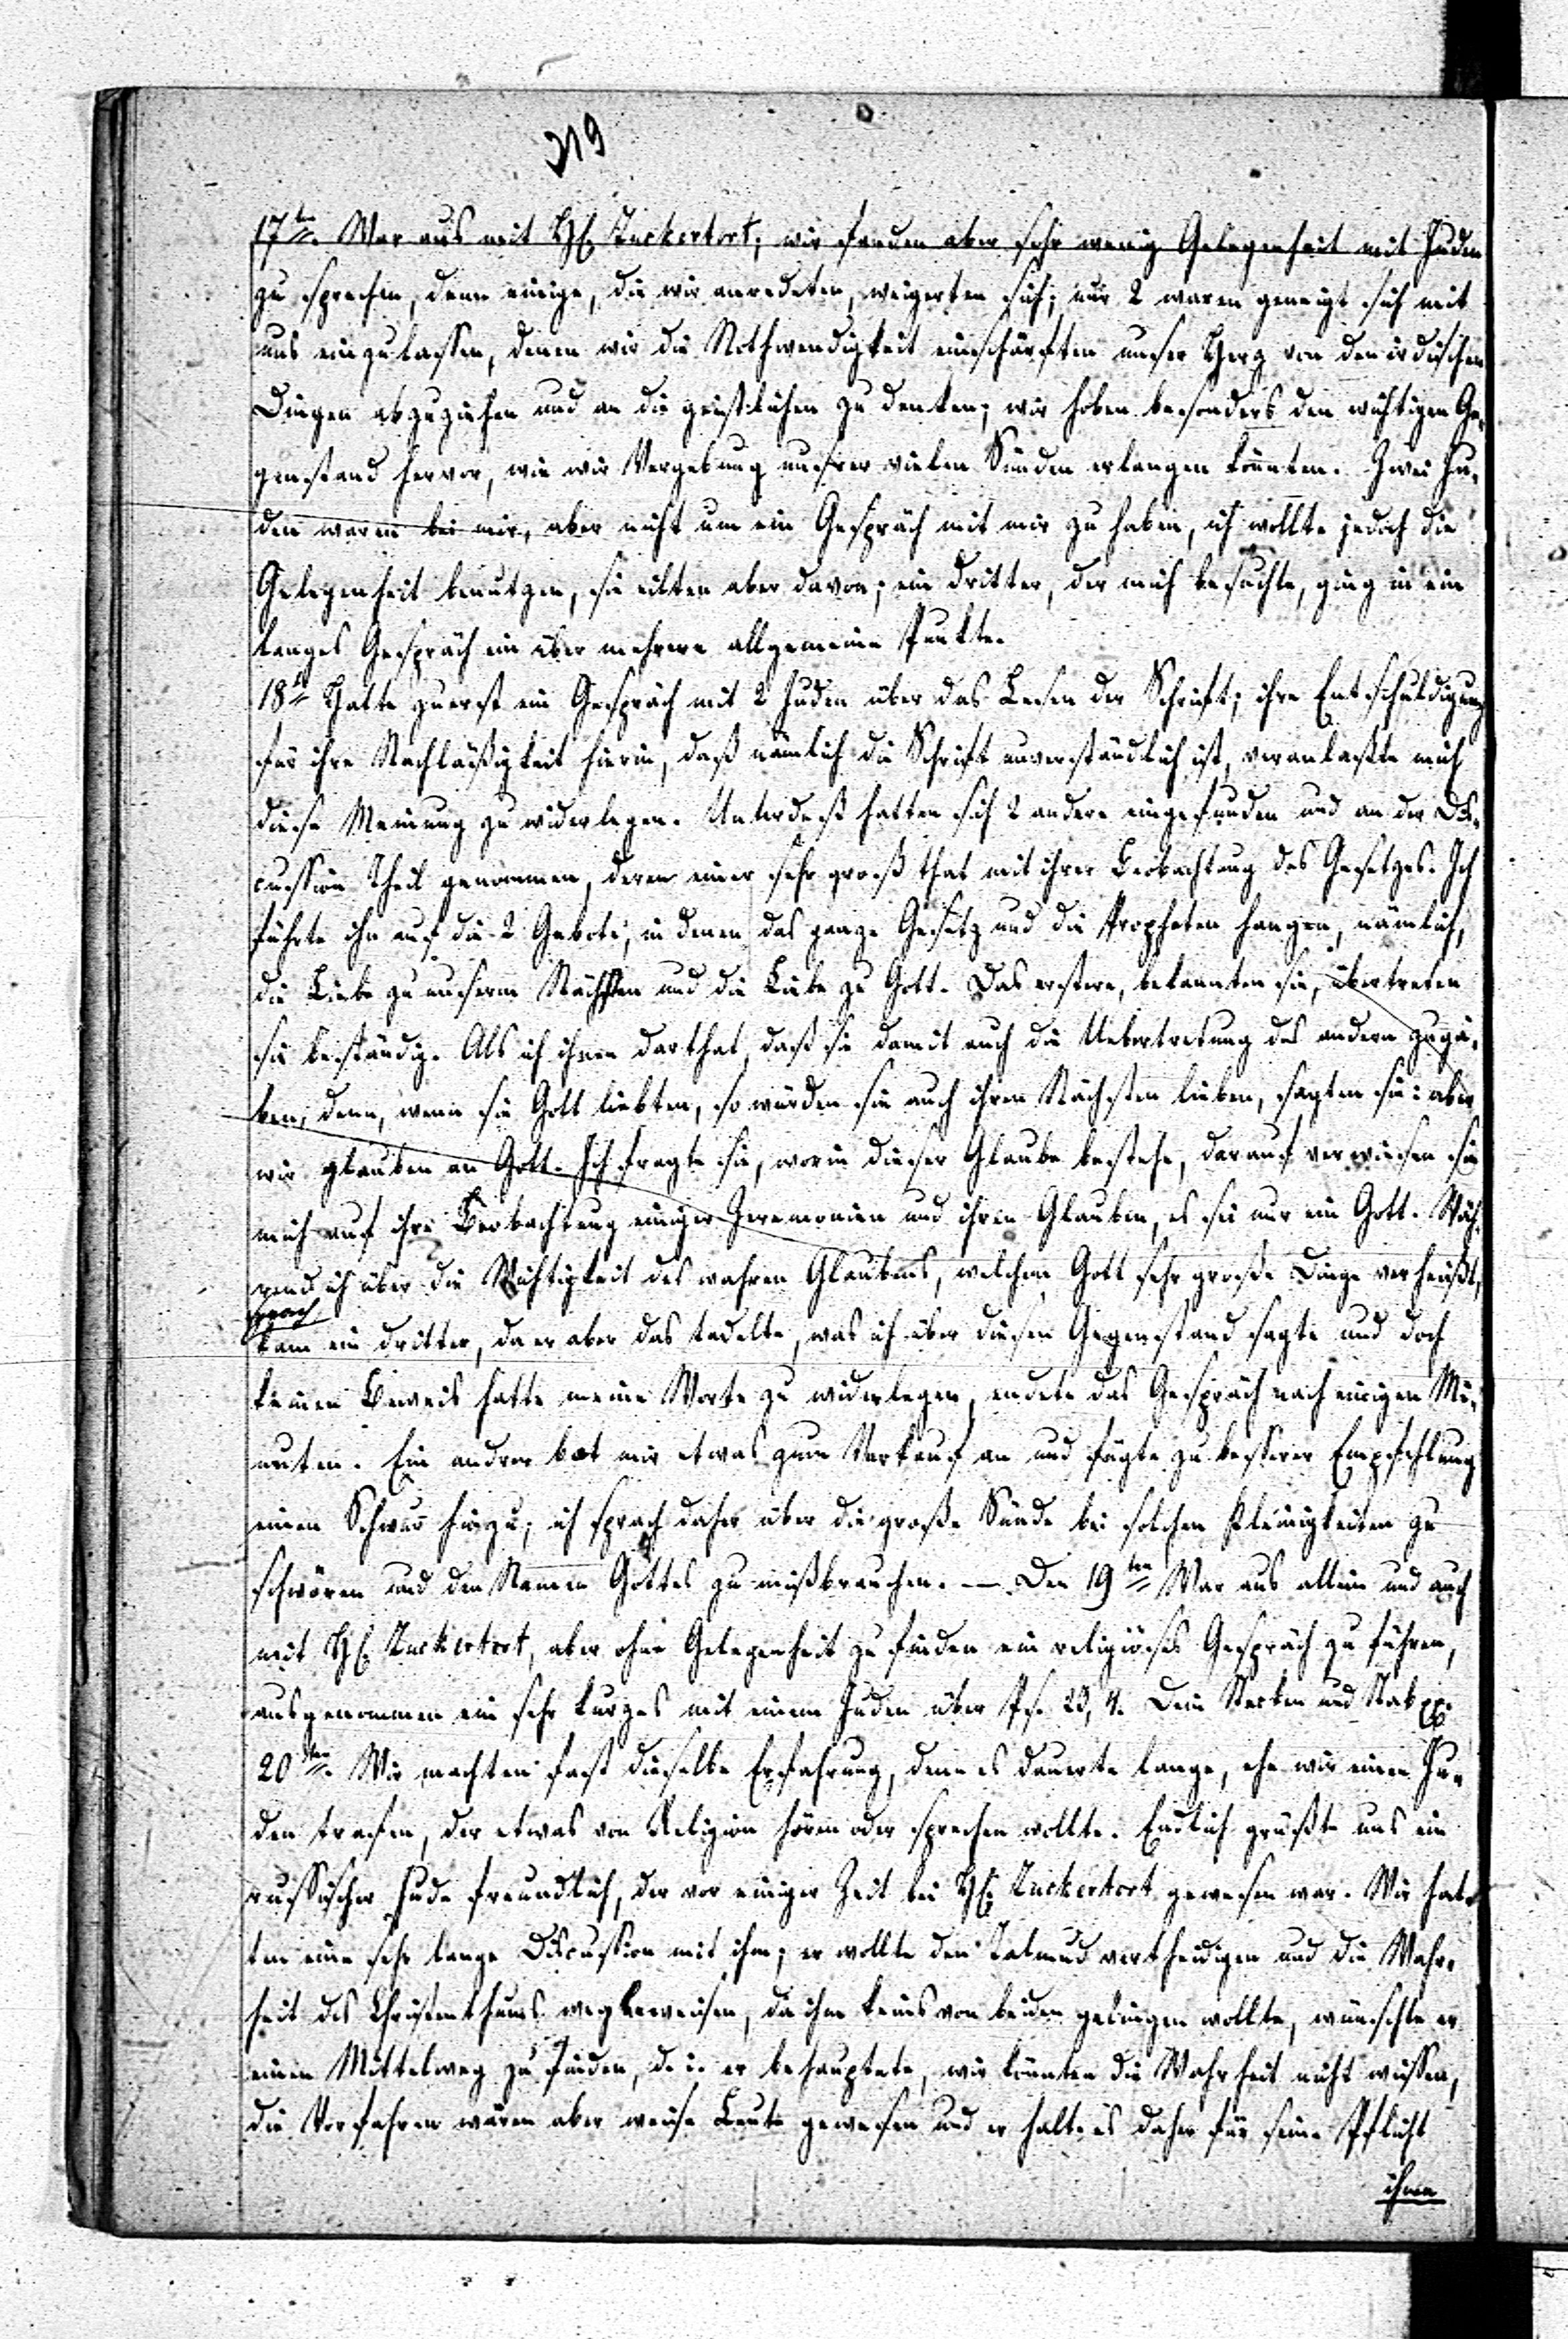 319
17ten. War aus mit H. Zuckertort; wir fanden aber sehr wenig Gelegenheit mit Juden
zu sprechen, denn einige, die wir anredeten, weigerten sich; nur 2 waren geneigt sich mit
uns einzulassen, denen wir die Nothwendigkeit einschärften unser Herz von den irdischen
Dingen abzuziehen und an die geistlichen zu denken; wir hoben besonders den wichtigen Ge-
genstand hervor, wie wir Vergebung unsrer vielen Sünden erlangen könnten. Zwei Ju-
den waren bei mir, aber nicht um ein Gespräch mit mir zu haben, ich wollte jedoch die
Gelegenheit benutzen, sie eilten aber davon; ein dritter, der mich besuchte, ging in ein
langes Gespräch ein über mehrere allgemeine Punkte.
18t Hatte zuerst ein Gespräch mit 2 Juden über das Lesen der Schrift; ihre Entschuldigung
für ihre Nachläßigkeit hierin, daß nämlich die Schrift unverständlich ist, veranlaßte mich
diese Meinung zu widerlegen. Unterdeß hatten sich 2 andere eingefunden und an der Dis-
cussion Theil genommen, deren einer sehr groß that mit ihrer Beobachtung des Gesetzes. Ich
führte ihn auf die 2 Gebote, in denen das ganze Gesetz und die Propheten hangen, nämlich,
die Liebe zu unserm Nächsten und die Liebe zu Gott. Das erstere, bekannten sie, übertreten
sie beständig. Als ich ihnen darthat, daß sie damit auch die Uebertretung des andern zugä-
ben, denn, wenn sie Gott liebten, so würden sie auch ihren Nächsten lieben, sagten sie: aber
wir glauben an Gott. Ich fragte sie, worin dieser Glaube bestehe, darauf verwiesen sie
mich auf ihre Beobachtung einiger Zeremonien und ihren Glauben, es sei nur ein Gott. Wäh-
rend ich über die Wichtigkeit des wahren Glaubens, welchem Gott sehr große Dinge verheißt,
sprach
kam ein dritter, da er aber das tadelte, was ich über diesen Gegenstand sagte und doch
keinen Beweis hatte meine Worte zu widerlegen, endete das Gespräch nach einigen Mi-
nuten. Ein andrer bot mir etwas zum Verkauf an und fügte zu besserer Empfehlung
einen Schwur hinzu; ich sprach daher über die große Sünde bei solchen Kleinigkeiten zu
schwören und den Namen Gottes zu mißbrauchen. — Den 19ten War aus allein und auch
mit H. Zuckertort, aber ohne Gelegenheit zu finden ein religiöses Gespräch zu führen,
ausgenommen ein sehr kurzes mit einem Juden über Ps. 23, 4. Dein Stecken und Stab
20ten. Wir machten fast dieselbe Erfahrung, denn es dauerte lange, ehe wir einen Ju-
den trafen, der etwas von Religion hören oder sprechen wollte. Endlich grüßte uns ein
russischer Jude freundlich, der vor einiger Zeit bei H. Zuckertort gewesen war. Wir hat-
ten eine sehr lange Discussion mit ihm; er wollte den Talmud vertheidigen und die Wahr-
heit des Christenthums wegbeweisen, da ihm keins von beiden gelingen wollte, wünschte er
einen Mittelweg zu finden, d. i. er behauptete, wir könnten die Wahrheit nicht wissen,
die Vorfahren wären aber weise Leute gewesen und er halte es daher für seine Pflicht
ihnen